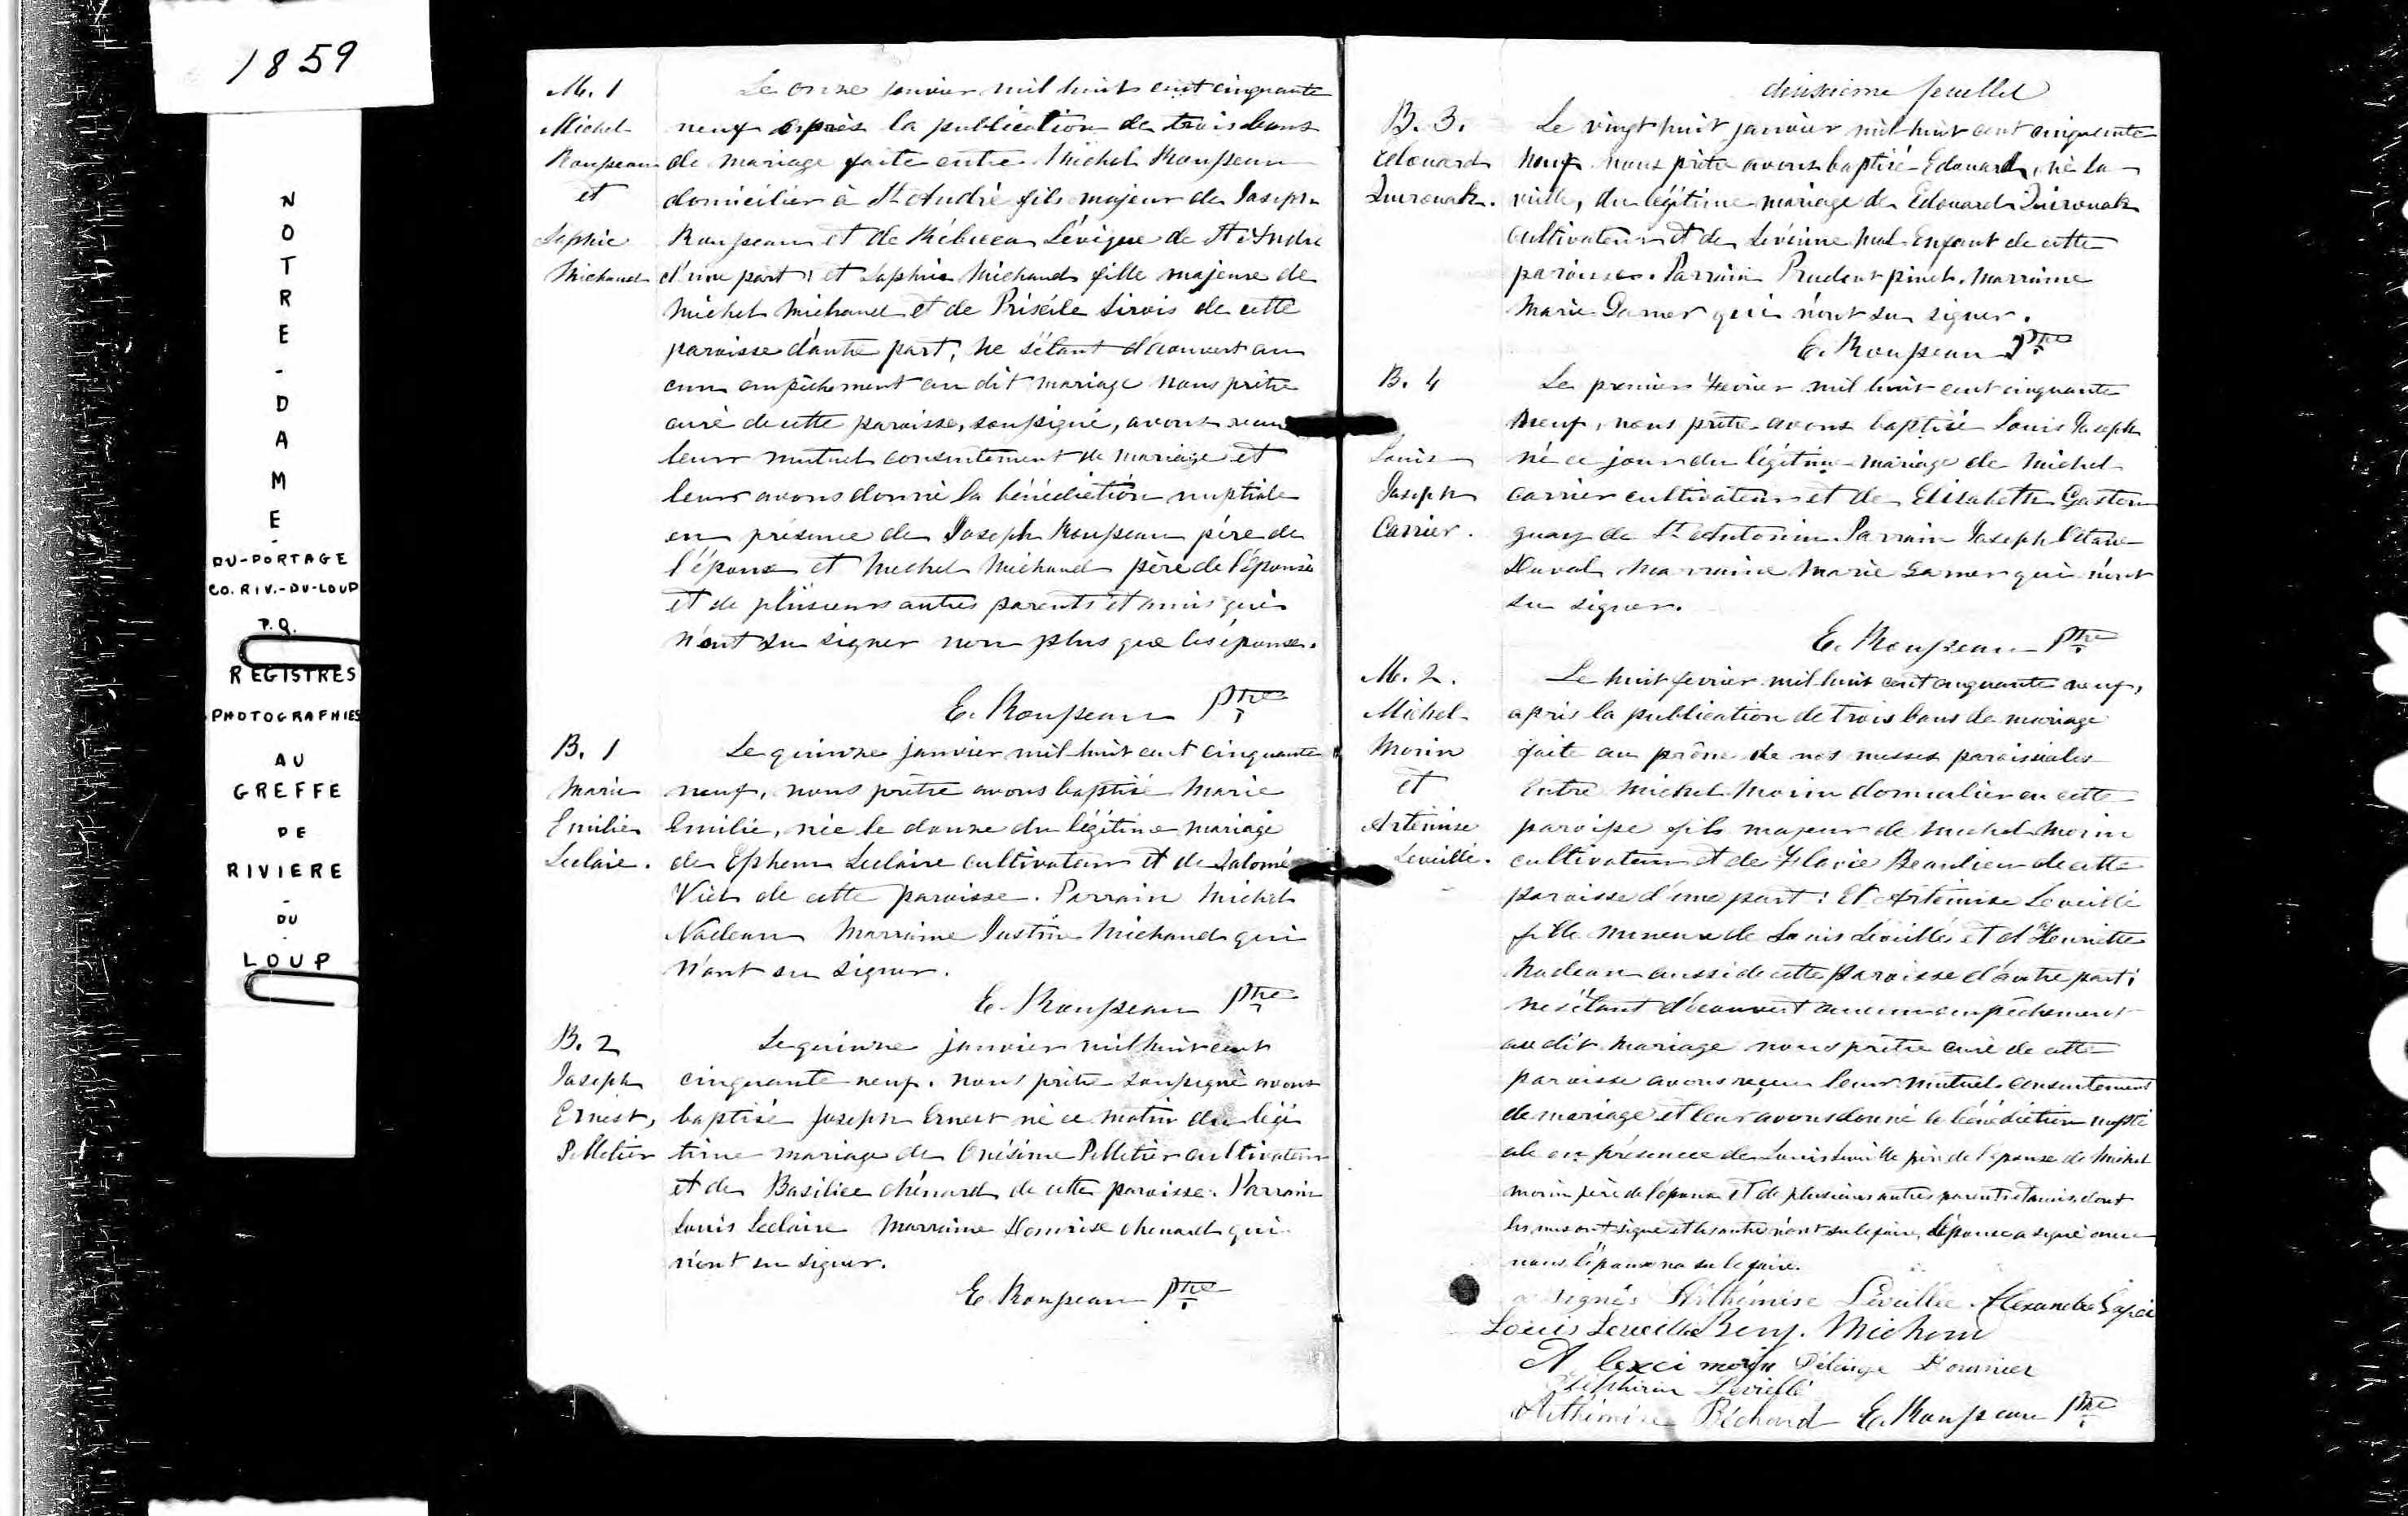 1859
NOTRE-DAME-
DU-PORTAGE
CO. RIV.-DU-LOUP
P.Q.
REGISTRES
PHOTOGRAPHIES
AU
GREFFE
DE
RIVIERE
-
DU
-
LOUP
M. 1
Michel
Rousseau
et
Sophie
Michaud
Le onze janvier mil huit cent cinquante
neuf après la publication de trois bans
de mariage faite entre Michel Rousseau
domicilier à St André fils majeur de Joseph
Rousseau et de Rébecca Lévêque de St André
d'une part; et Sophie Michaud fille majeure de
Michel Michaud et de Priscile Sirois de cette
paroisse d'autre part, ne s'étant découvert au
cun empêchement au dit mariage nous prêtre
curé de cette paroisse, soussigné, avons reçu
leur mutuel consentement de mariage et
leur avons donné la bénédiction nuptiale
en présence de Joseph Rousseau père de
l'époux et Michel Michaud père de l'épouse
et de plusieurs autres parents et amis qui
n'ont su signer non plus que les épouse.
E. Rousseau Ptre
B. 1
Marie
Emilie
Leclaire.
Le quinze janvier mil huit cent cinquante
neuf, nous prêtre avons baptisé Marie
Emilie, née le douze du légitime mariage
de Ephem Leclaire cultivateur et de Salomé
Viel de cette paroisse. Parrain Michel
Nadeau Marraine Justine Michaud qui
n'ont su signer.
E. Rousseau Ptre
B. 2
Joseph
Ernest,
Pelletier
Le quinze janvier mil huit cent
cinquante neuf. nous prêtre soussigné avons
baptisé Joseph Ernest né ce matin du légi
time mariage de Onésime Pelletier cultivateur
et de Basilice chénard de cette paroisse. Parrain
Louis Leclaire Marraine chenard qui
n'ont su signer.
E. Rousseau Ptre
deuxième feuillet
B. 3.
Edouard
Quirouak.
Le vingt huit janvier mil huit cent cinquante
neuf nous prêtre avons baptisé Edouard, né la
veille, du légitime mariage de Edouard Quirouak
cultivateur et de Séverine Enfant de cette
paroisse. Parrain Prudent pinel. Marraine
Marie Gamer qui n'ont su signer.
E. Rousseau Ptre
B. 4
Louis
Joseph
Carrier.
Le premier Fevrier mil huit cent cinquante
neuf, nous prêtre avons baptisé Louis Joseph
né ce jour du légitime mariage de Michel
Carrier cultivateur et de Elisabeth Gaston
guay de St Antonin Parrain Joseph Octave
Duval Marraine Marie Gamer qui n'ont
su signer.
E. Rousseau Ptre
M. 2.
Michel
Morin
et
Artémise
Leveillé.
Le huit fevrier mil huit cent cinquante neuf,
après la publication de trois bans de mariage
faite au prône de nos messes paroissiales
Entre Michel Morin domicilier en cette
paroisse fils majeur de Michel Morin
cultivateur et de Flavie Beaulieu de cette
paroisse d'une part: Et Artémise Leveillé
fille mineure de Louis Léveillé et d'Henriette
Nadeau aussi de cette paroisse d'autre part;
ne s'étant découvert aucun empêchement
au dit mariage nous prêtre curé de cette
paroisse avons reçu leur mutuel consentement
de mariage et leur avons donné la bénédiction nupti
ale en présence de Louis Leveillé père de l'épouse de Michel
morin père de l'époux et de plusieurs autres parents et amis dont
les uns ont signé et les autres n'ont su le faire, l'épouse a signé avec
nous l'époux na su le faire.
signés Arthémise Léveillée Alexandre
Louis Leveille Benj. Michaud
Alexci morin Fournier
Leveillé
Arthémise Béchard E. Rousseau Ptre